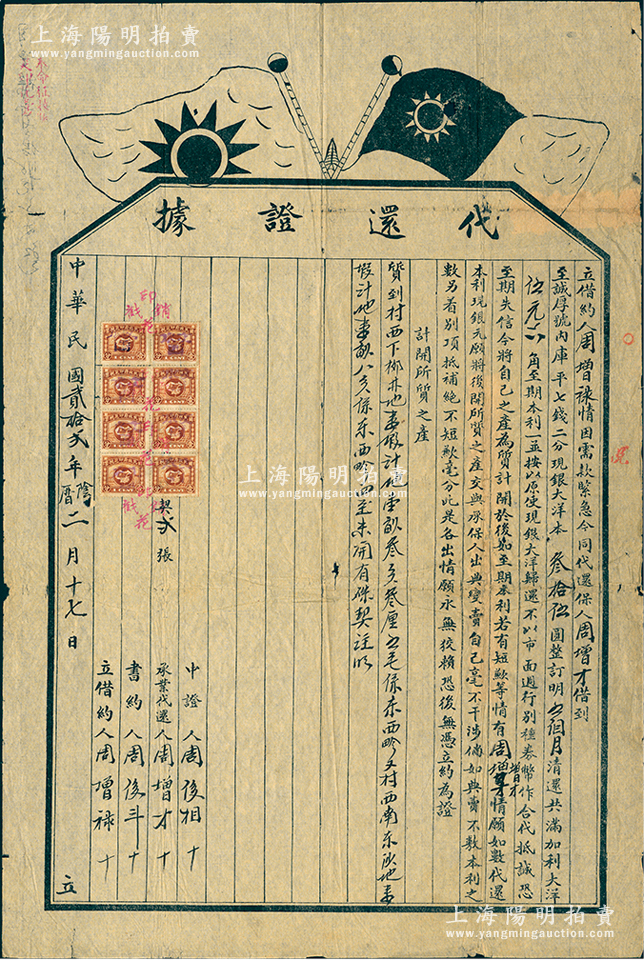 上海陽明拍賣
www.yangmingauction.com
上海陽明拍賣
www.yangmingauction.com
代還證據
立借約人周增祿情因需款緊急今同代還保人周增才借到
至誠厚號內庫平七錢二分現銀大洋本 叁拾伍圓整訂明 個月清還共滿加利大洋
伍元六角至期本利一並按以原使現銀大洋歸還不以市面通行別種券幣作合代抵誠恐
至期失信今將自己之產為質計開於後如至期本利若有短欺等情有周增才情願如數代還
本利現銀元願將後開所質之產交與承保人出典變賣自己毫不干涉倘如典賣不敷本利之
數另看別項抵補絕不短欺毫分此是各出情願永無狡賴恐後無憑立約為證
計開所質之產
質到村西下 地 計地 畝叁分叁厘五毛係東西畛又村西南東 地
計地 畝八分係東西畛四至未開有硃契註明
契弍張
中證人周後相十
承業代還人周增才十
書約人周後三十
立借約人周增祿十
中華民國貳拾弍年陰曆二月十七日
立
上海陽明拍賣
www.yangmingauction.com
上海陽明拍賣
www.yangmingauction.com